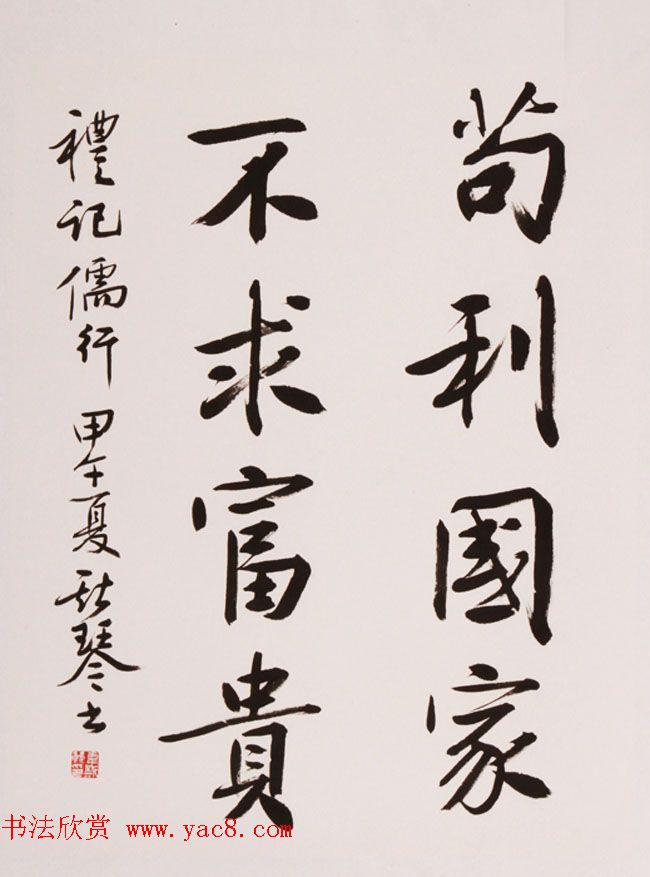 苟利國家
不求富貴
禮記儒行 甲午夏 琴书
书法欣赏 www.yac8.com